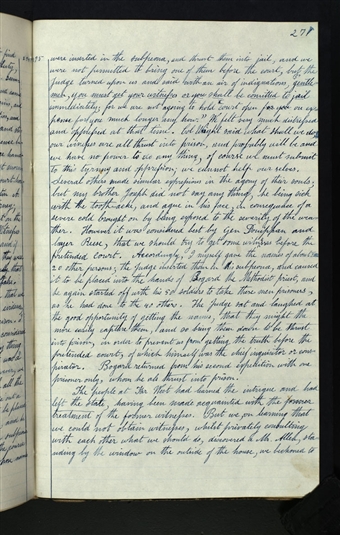 277
were inserted in the subpoena, and thrust them into jail, and we
were not permitted to bring one of them before the court, but the
judge turned upon us and said with an air of indignation, gentle
men, you must get your witnesses or you shall be comitted to jail
immediately, for we are not agoing to hold court open for you on ex
pense for you much longer any how." We felt very much distressed
and oppressed at that time. Col Wight said what shall we do,
our witnesses are all thrust into prison, and probably will be and
we have no power to do any thing, of course we must submit
to this tyranny and oppression; we cannot help our selves.
Several others made similar expressions in the agony of their souls;
but my brother Joseph did not say any thing, he being sick
with the tooth-ache, and ague in his face, in consequence of a
severe cold brought on by being exposed to the severity of the wea-
ther. However it was considered best by Gen Doniphan and
lawyer Reese, that we should try to get some witnesses before the
pretended court. Accordingly, I myself gave the names of about
20 other persons; the Judge inserted them in the subpoena, and caused
it to be placed into the hands of Bogard the Methodist priest, and
he again started off with his 50 soldiers to take those men prisoners,
as he had done to the 40 others. The Judge sat and laughed at
the good opportunity of getting the names, that they might the
more easily capture them, and so bring them down to be thrust
into prison, in order to prevent us from getting the truth before the
pretended court, of which himself was the chief inquisitor or cons-
pirator. Bogard returned from his second expedition with one
prisoner only, whom he also thrust into prison.
The people at Far West had learned the intrigue and had
left the State, having been made acquainted with the
treatment of the former witnesses. But we on learning that
we could not obtain witnesses, whilst privately consulting
with each other what we should do, discovered a Mr. Allen, sta
nding by the window on the outside of the house, we beckoned to